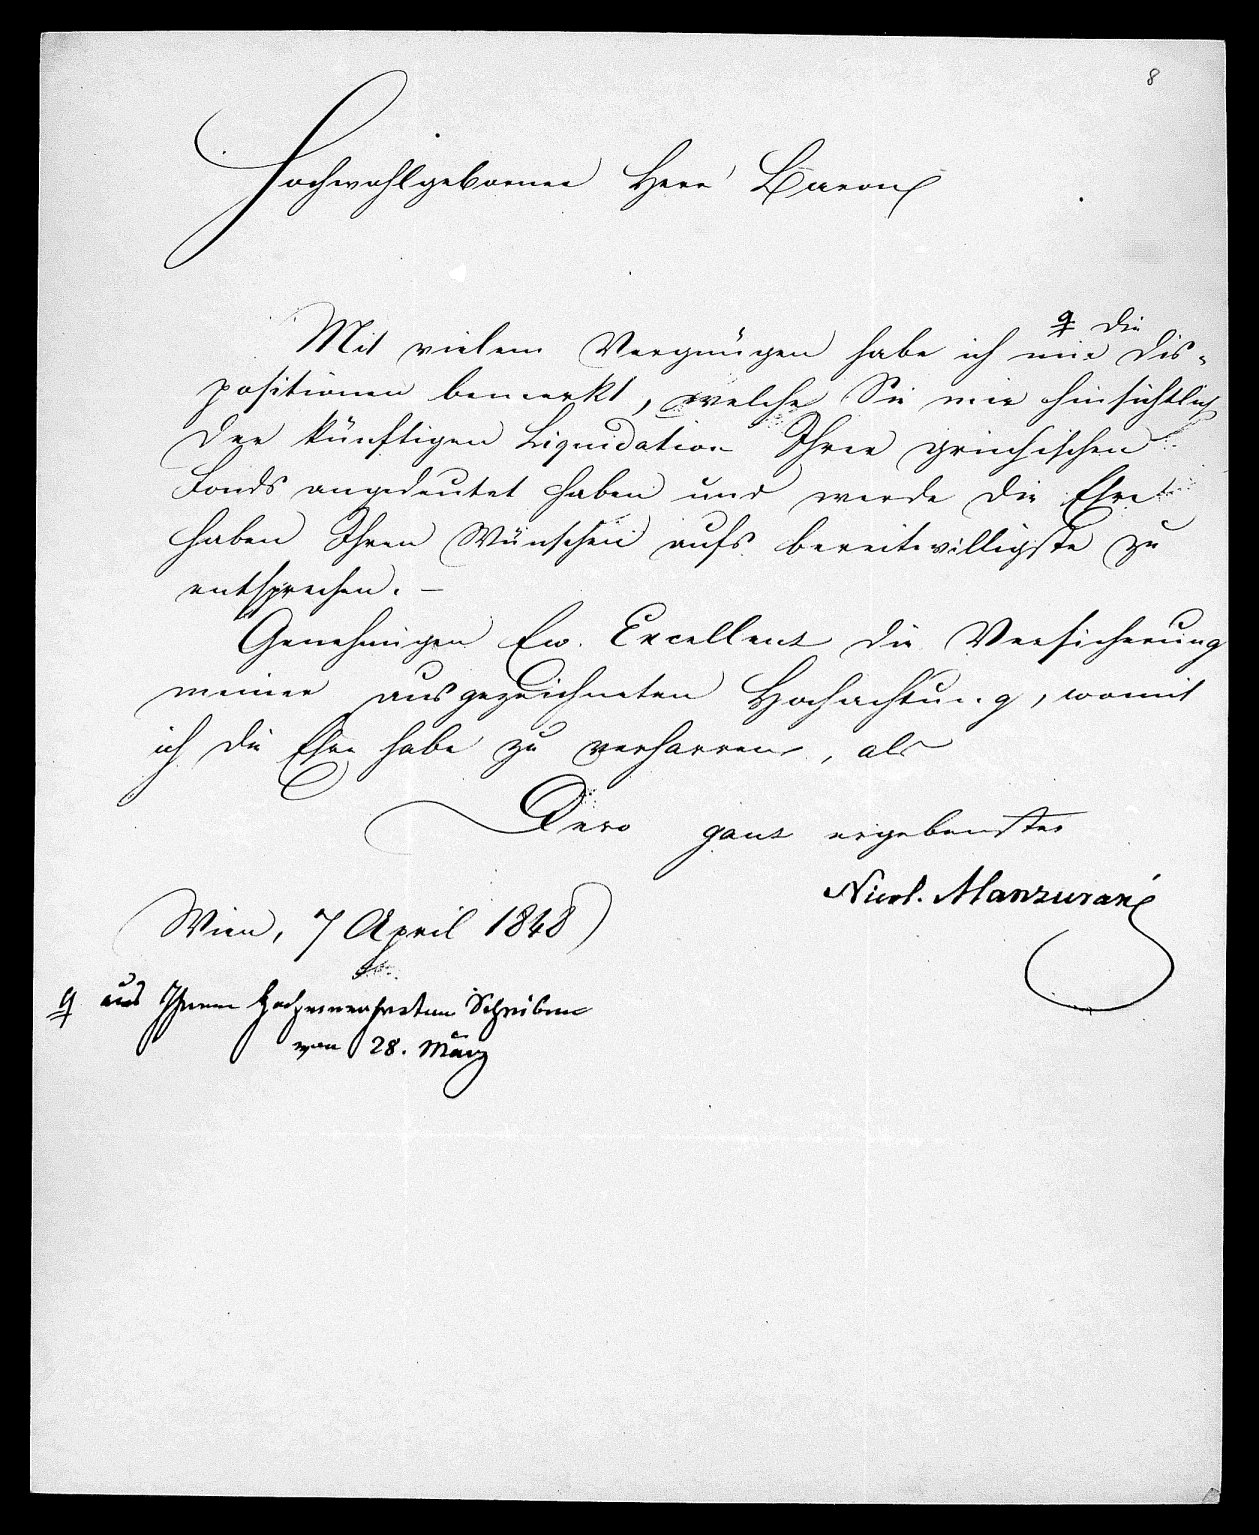 8
Hochwohlgeborner Herr Baron
Mit vielem Vergnügen habe ich mir die Dis-
positionen bemerkt, welche Sie mir hinsichtlich
der künftigen Liquidation Ihrer griechischen
Fonds angedeutet haben und werde die Ehre
haben Ihren Wünschen aufs bereitwilligste zu
entsprechen. –
Genehmigen Ew. Excellenz die Versicherung
meiner ausgezeichneten Hochachtung, womit
ich die Ehre habe zu verharren, als
Dero ganz ergebenster
Nicol. Manzurani
Wien, 7 April 1848
aus Ihrem Hochgeneehrten Schreiben
von 28. März